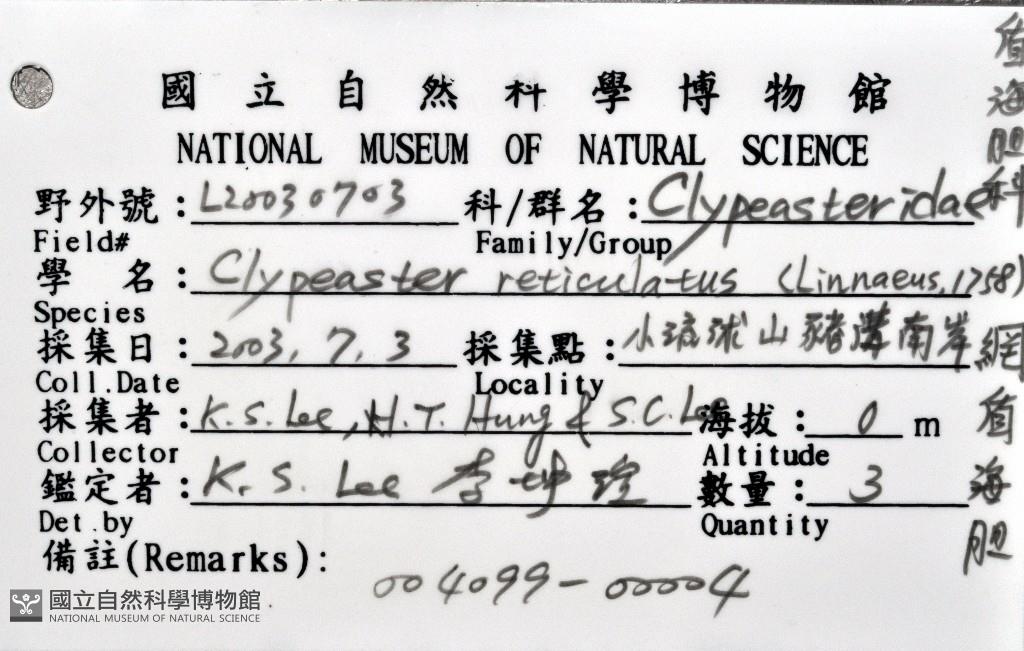 國立自然科學博物館
NATIONAL MUSEUM OF NATURAL SCIENCE
野外號：L20030703 科/群名：Clypeasteridae 盾海胆科
Field# Family/Group
學名：Clypeaster reticulatus (Linnaeus, 1758) 網盾海胆
Species
採集日：2003. 7. 3 採集點：小琉球山豬溝南岸
Coll.Date Locality
採集者：K.S. Lee, H.T. Hung & S.C. Lee 海拔：0 m
Collector Altitude
鑑定者：K. S. Lee 李坤瑄 數量：3
Det.by Quantity
備註(Remarks):
004099-00004
國立自然科學博物館
NATIONAL MUSEUM OF NATURAL SCIENCE